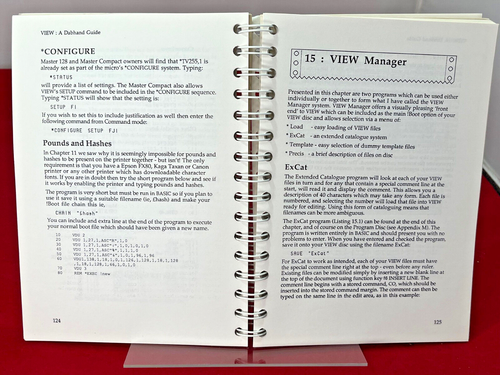 VIEW : A Dabhand Guide
*CONFIGURE
Master 128 and Master Compact owners will find that *TV255,1 is
already set as part of the micro's *CONFIGURE system. Typing:
*STATUS
will provide a list of settings. The Master Compact also allows
VIEW's SETUP command to be included in the *CONFIGURE sequence.
Typing *STATUS will show that the setting is:
SETUP FI
If you wish to set this to include justification as well then enter the
following command from Command mode:
*CONFIGURE SETUP FJI
Pounds and Hashes
In Chapter 11 we saw why it is seemingly impossible for pounds and
hashes to be present on the printer together - but isn't! The only
requirement is that you have a Epson FX80, Kaga Taxan or Canon
printer or any other printer which has downloadable character
fonts. If you are in doubt then try the short program below and see if
it works by enabling the printer and typing pounds and hashes.
The program is very short but must be run in BASIC so if you plan to
use it save it using a suitable filename (ie, £hash) and make your
!Boot file chain this ie,
CHAIN "£hash"
You can include and extra line at the end of the program to execute
your normal boot file which should have been given a new name.
10 VDU 2
70 VDU 3
124
15 : VIEW Manager
Presented in this chapter are two programs which can be used either
individually or together to form what I have called the VIEW
Manager system. VIEW Manager offers a visually pleasing 'front
end' to VIEW which can be included as the main !Boot option of your
VIEW disc and allows selection via a menu of:
* Load - easy loading of VIEW files
* ExCat - an extended catalogue system
* Template - easy selection of dummy template files
* Precis - a brief description of files on disc
ExCat
The Extended Catalogue program will look at each of your VIEW
files in turn and for any that contain a special comment line at the
start, will read it and display the comment. This allows you a
description of 60 characters which may take any form. Each file is
numbered, and selecting the number will load that file into VIEW
ready for editing. Using this form of cataloguing means that
filenames can be more ambiguous.
The ExCat program (Listing 15.1) can be found at the end of this
chapter, and of course on the Program Disc (see Appendix M). The
program is written entirely in BASIC and should present you with no
problems to enter. When you have entered and checked the program,
save it onto your VIEW disc using the filename ExCat:
SAVE "ExCat"
For ExCat to work as intended, each of your VIEW files must have
the special comment line right at the top - even before any ruler.
Existing files can be modified simply by inserting a new blank line at
the top of the document using function key f6 INSERT LINE. The
comment line begins with a stored command, CO, which should be
inserted into the stored command margin. The comment can then be
typed on the same line in the edit area, as in this example:
125